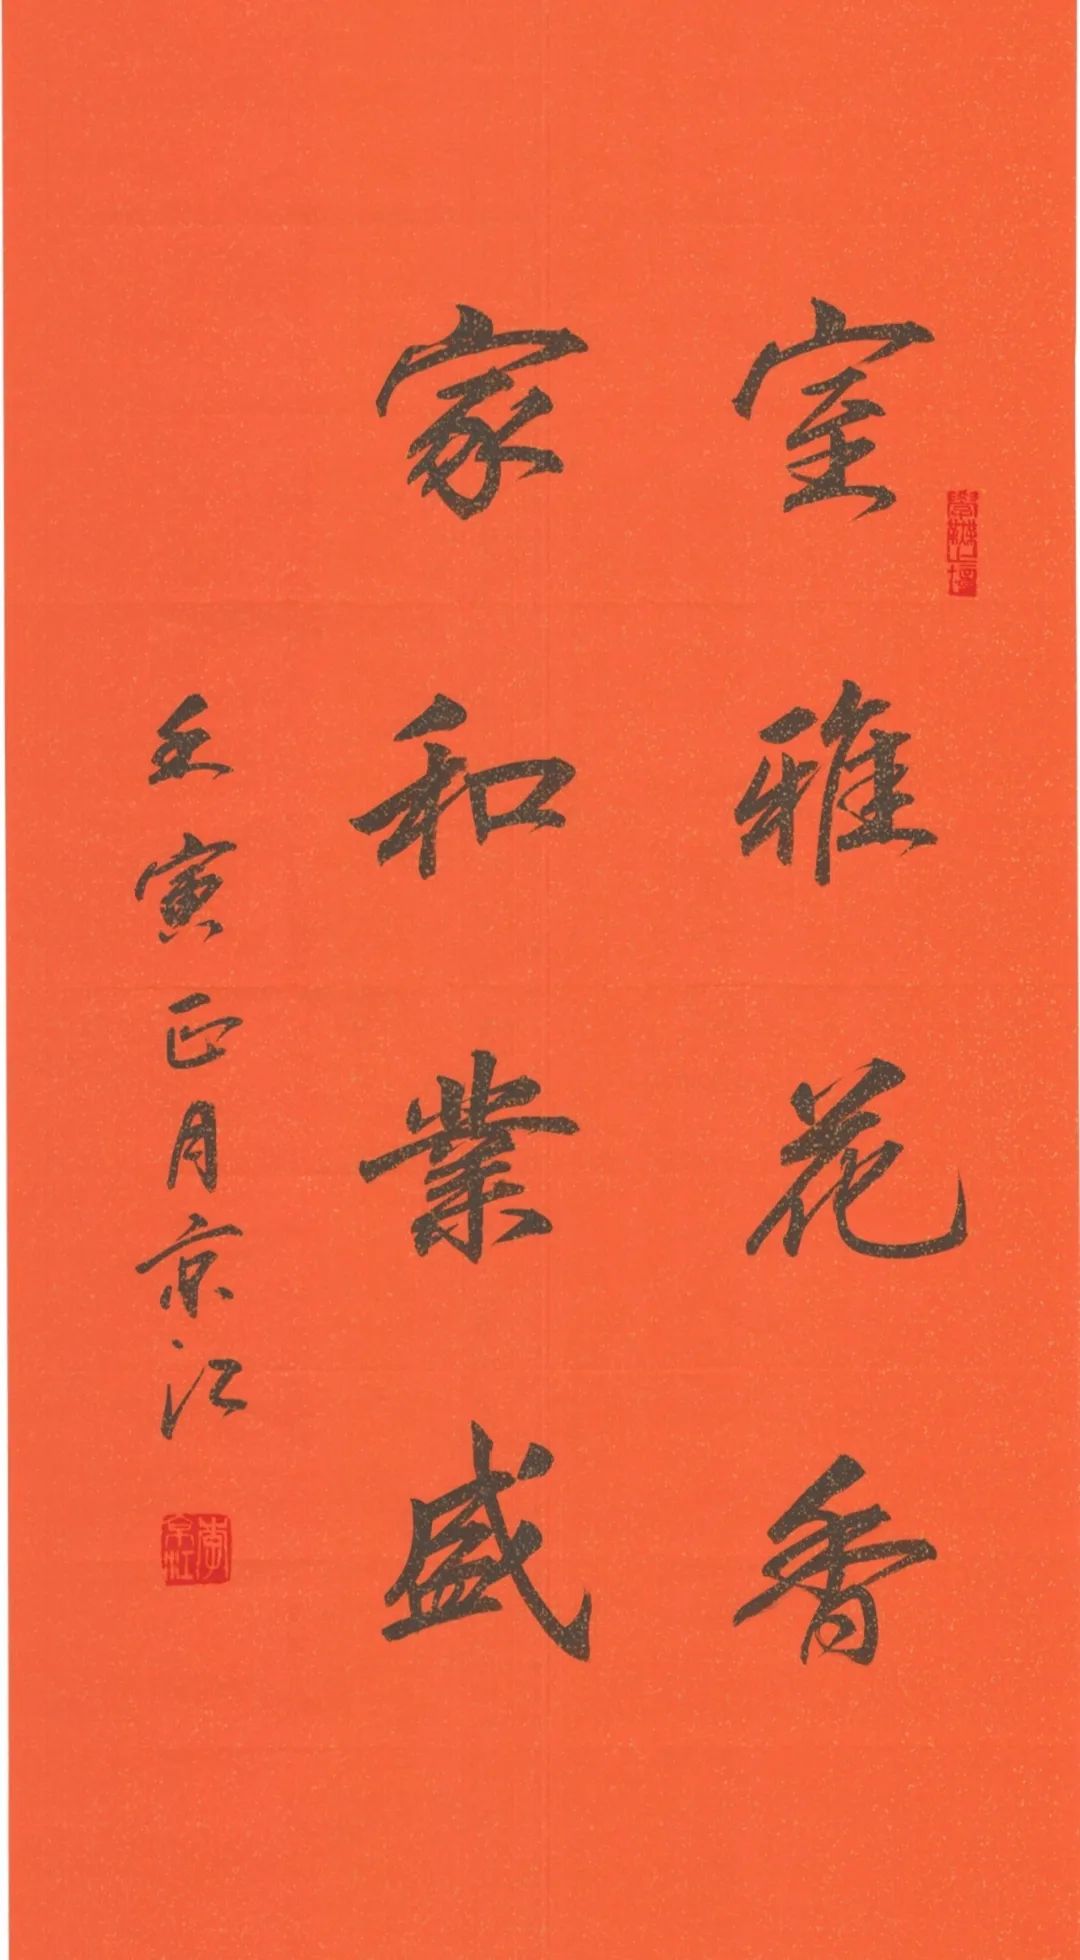 室雅花香
家和業盛
壬寅正月京江
李京江